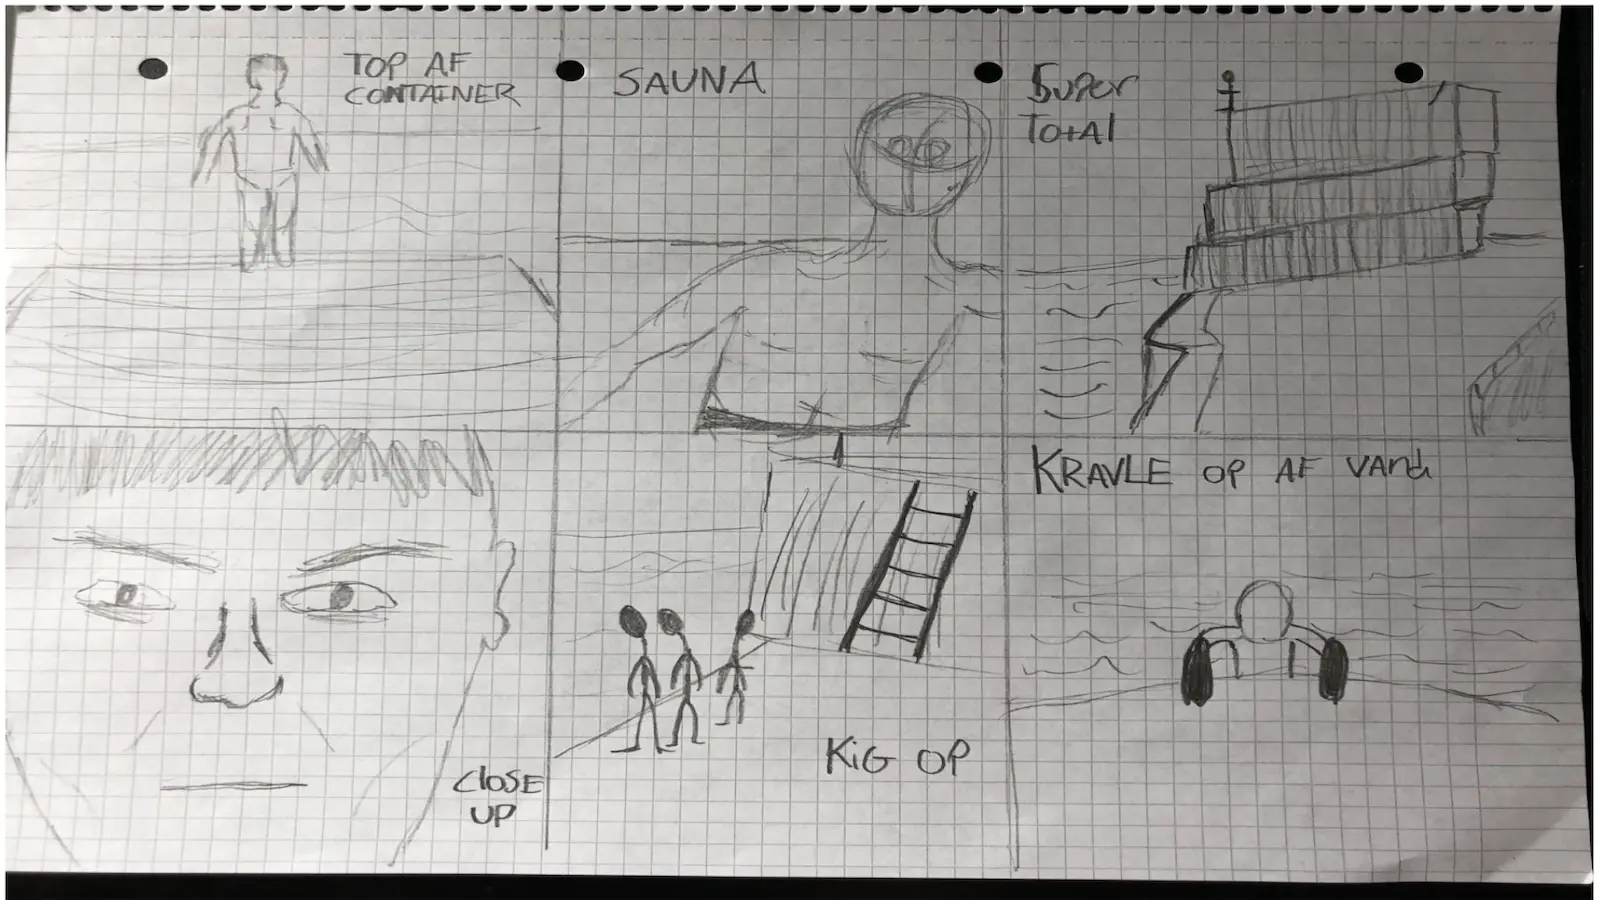 TOP AF
CONTAINER
SAUNA
Super
TOTAl
CloSE
UP
KiG OP
KRAVLE OP AF VANd